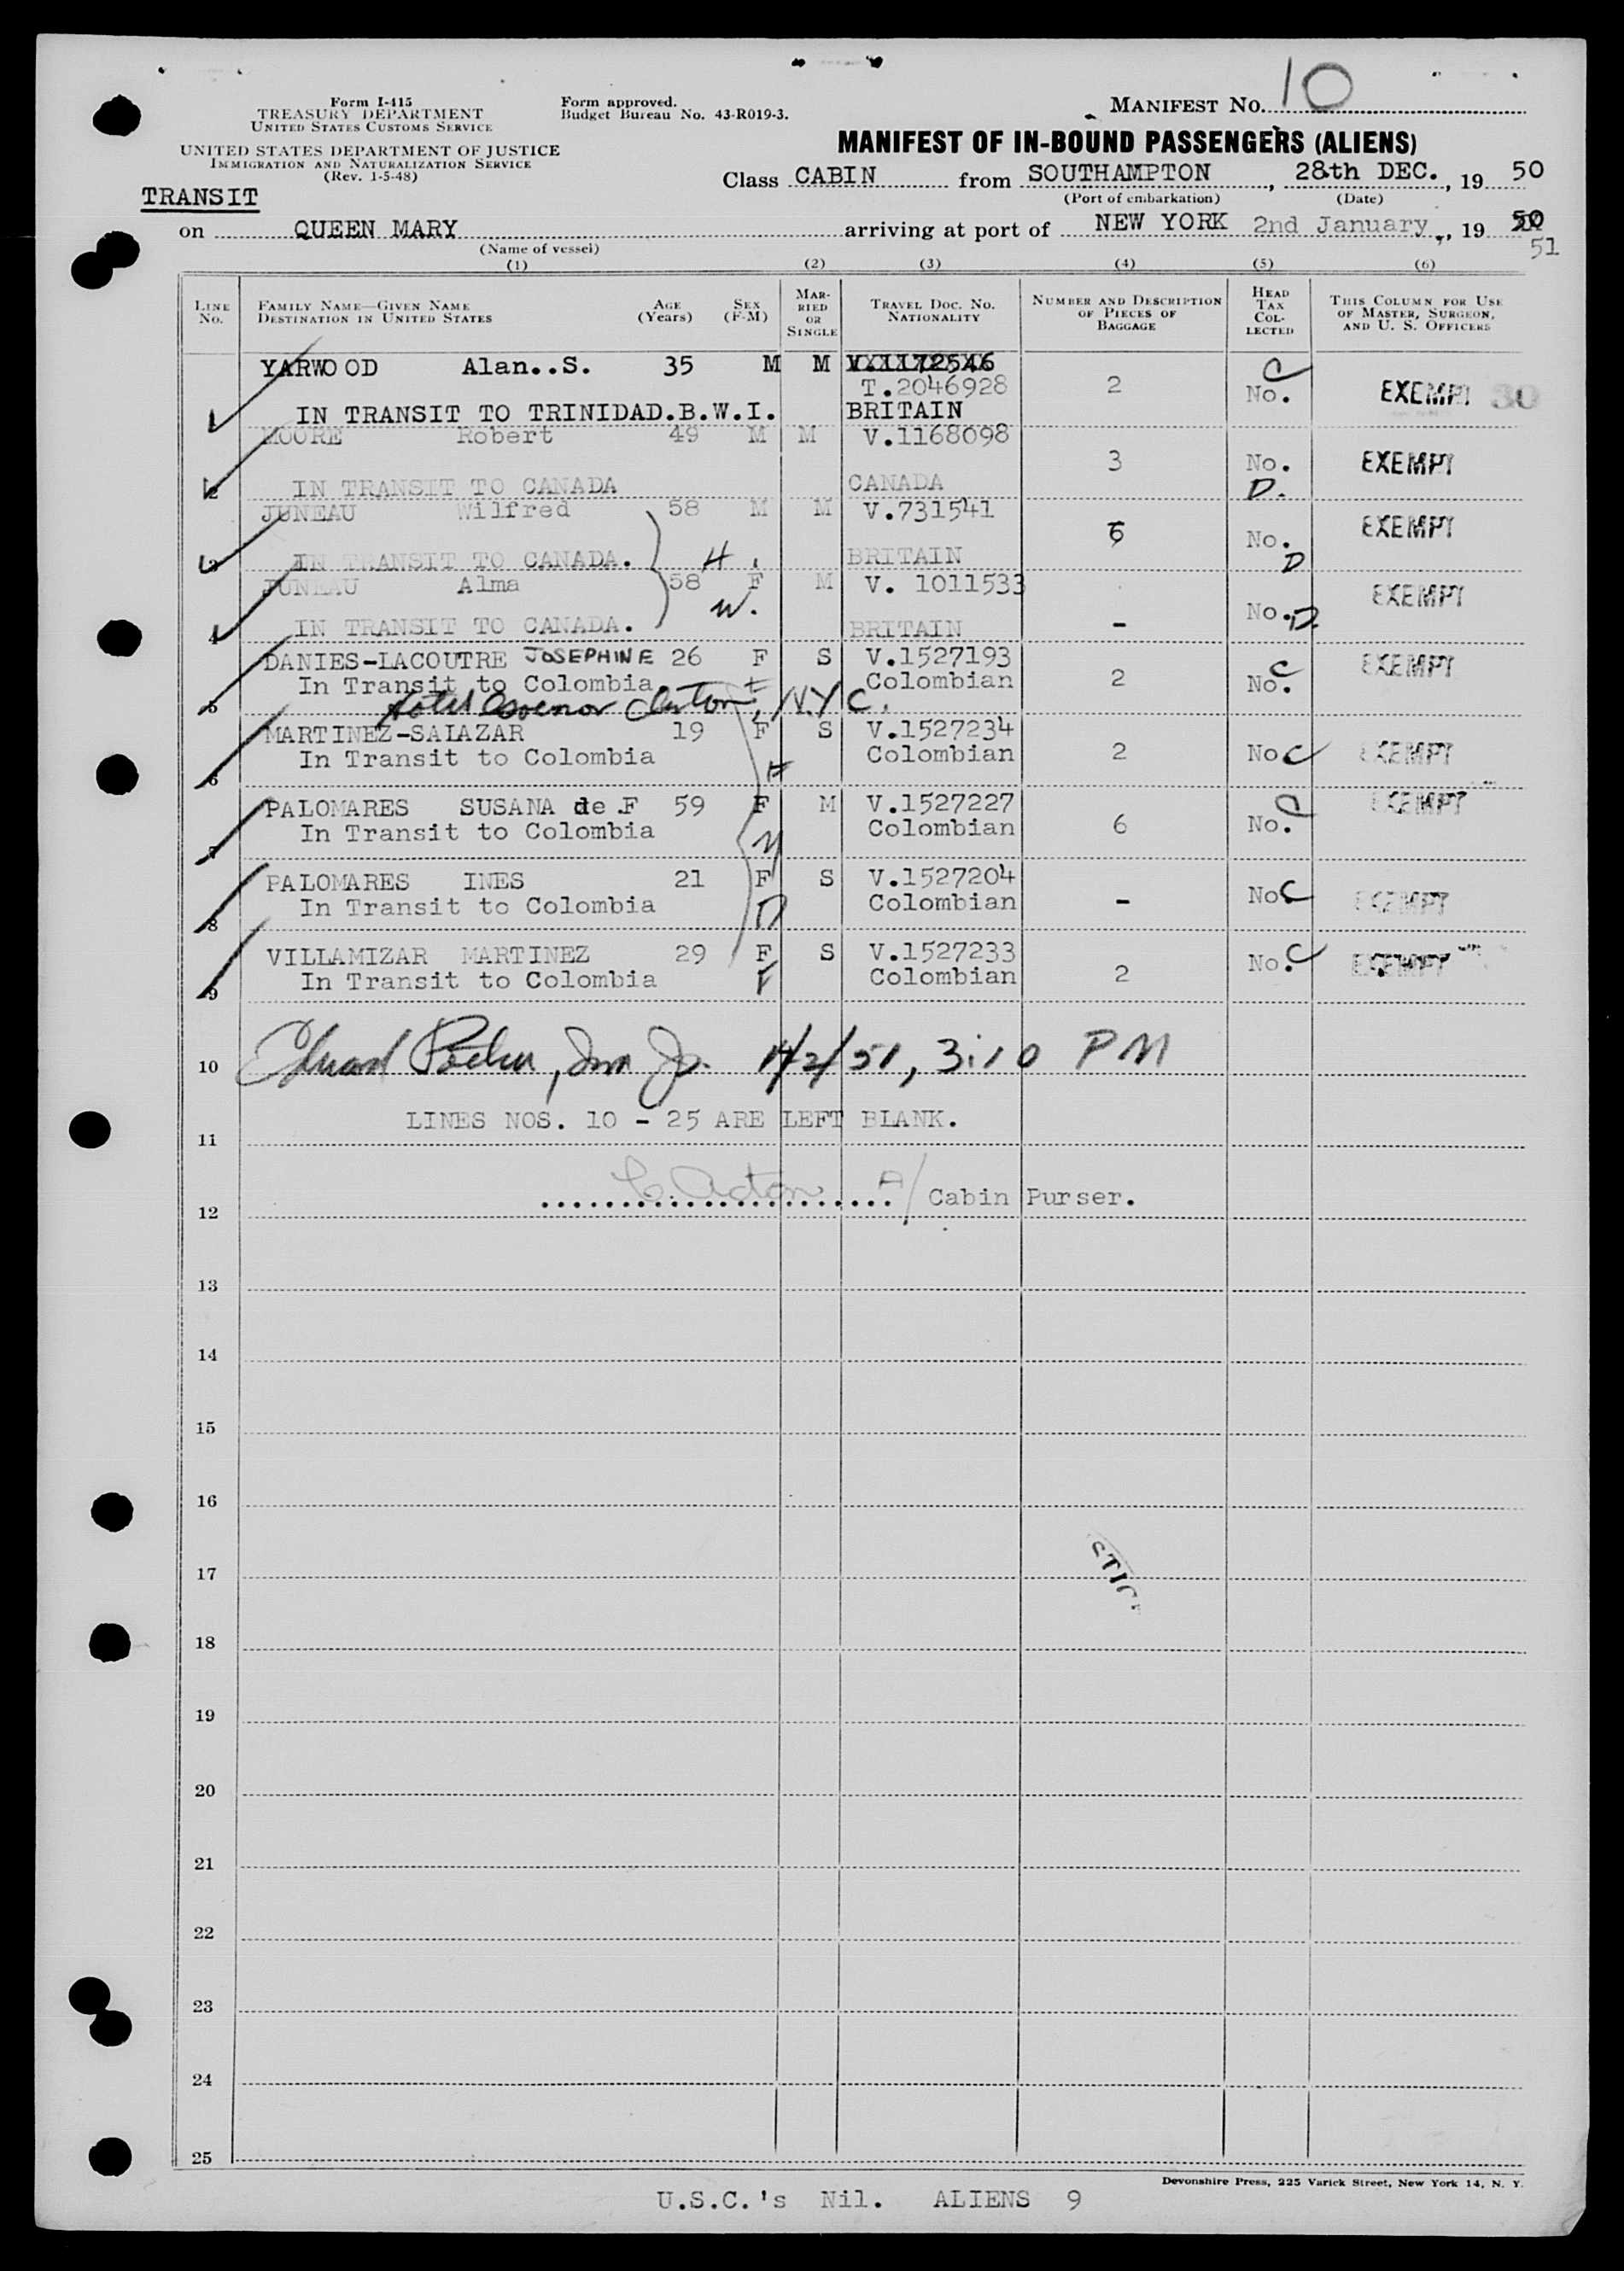 Form I-415
TREASURY DEPARTMENT
UNITED STATES CUSTOMS SERVICE
UNITED STATES DEPARTMENT OF JUSTICE
IMMIGRATION AND NATURALIZATION SERVICE
(Rev. 1-5-48)
Form approved.
Budget Bureau No. 43-R019-3.
MANIFEST No. 10
MANIFEST OF IN-BOUND PASSENGERS (ALIENS)
Class CABIN from SOUTHAMPTON, 28th DEC., 19 50
(Port of embarkation) (Date)
TRANSIT
on QUEEN MARY arriving at port of NEW YORK 2nd January, 19 50
51
(Name of vessel)
(1) (2) (3) (4) (5) (6)
LINE No. FAMILY NAME—GIVEN NAME DESTINATION IN UNITED STATES AGE (Years) SEX (F-M) MARRIED OR SINGLE TRAVEL DOC. No. NATIONALITY NUMBER AND DESCRIPTION OF PIECES OF BAGGAGE HEAD TAX COLLECTED THIS COLUMN FOR USE OF MASTER, SURGEON, AND U. S. OFFICERS
YARWOOD Alan..S. 35 M M V.1172546
T.2046928 2 No. C EXEMPT 30
IN TRANSIT TO TRINIDAD.B.W.I. BRITAIN
MOORE Robert 49 M M V.1168098
3 No. D. EXEMPT
2 IN TRANSIT TO CANADA CANADA
JUNEAU Wilfred 58 M M V.731541
6 No. D EXEMPT
3 IN TRANSIT TO CANADA. H. BRITAIN
JUNEAU Alma 58 F M V. 1011533
W. - No. D. EXEMPT
4 IN TRANSIT TO CANADA. BRITAIN
DANIES-LACOUTRE JOSEPHINE 26 F S V.1527193
In Transit to Colombia Colombian 2 No. C EXEMPT
5 Hotel Govenor Clinton, N.Y.C.
MARTINEZ-SALAZAR 19 F S V.1527234
6 In Transit to Colombia Colombian 2 No C EXEMPT
PALOMARES SUSANA de F 59 F M V.1527227
7 In Transit to Colombia Colombian 6 No. C EXEMPT
PALOMARES INES 21 F S V.1527204
8 In Transit to Colombia Colombian - No C EXEMPT
VILLAMIZAR MARTINEZ 29 F S V.1527233
9 In Transit to Colombia Colombian 2 No. C EXEMPT
10 1/2/51, 3:10 PM
LINES NOS. 10 - 25 ARE LEFT BLANK.
11
C. Acton A/ Cabin Purser.
12
13
14
15
16
17
18
19
20
21
22
23
24
25
Devonshire Press, 225 Varick Street, New York 14, N. Y.
U.S.C.'s Nil. ALIENS 9